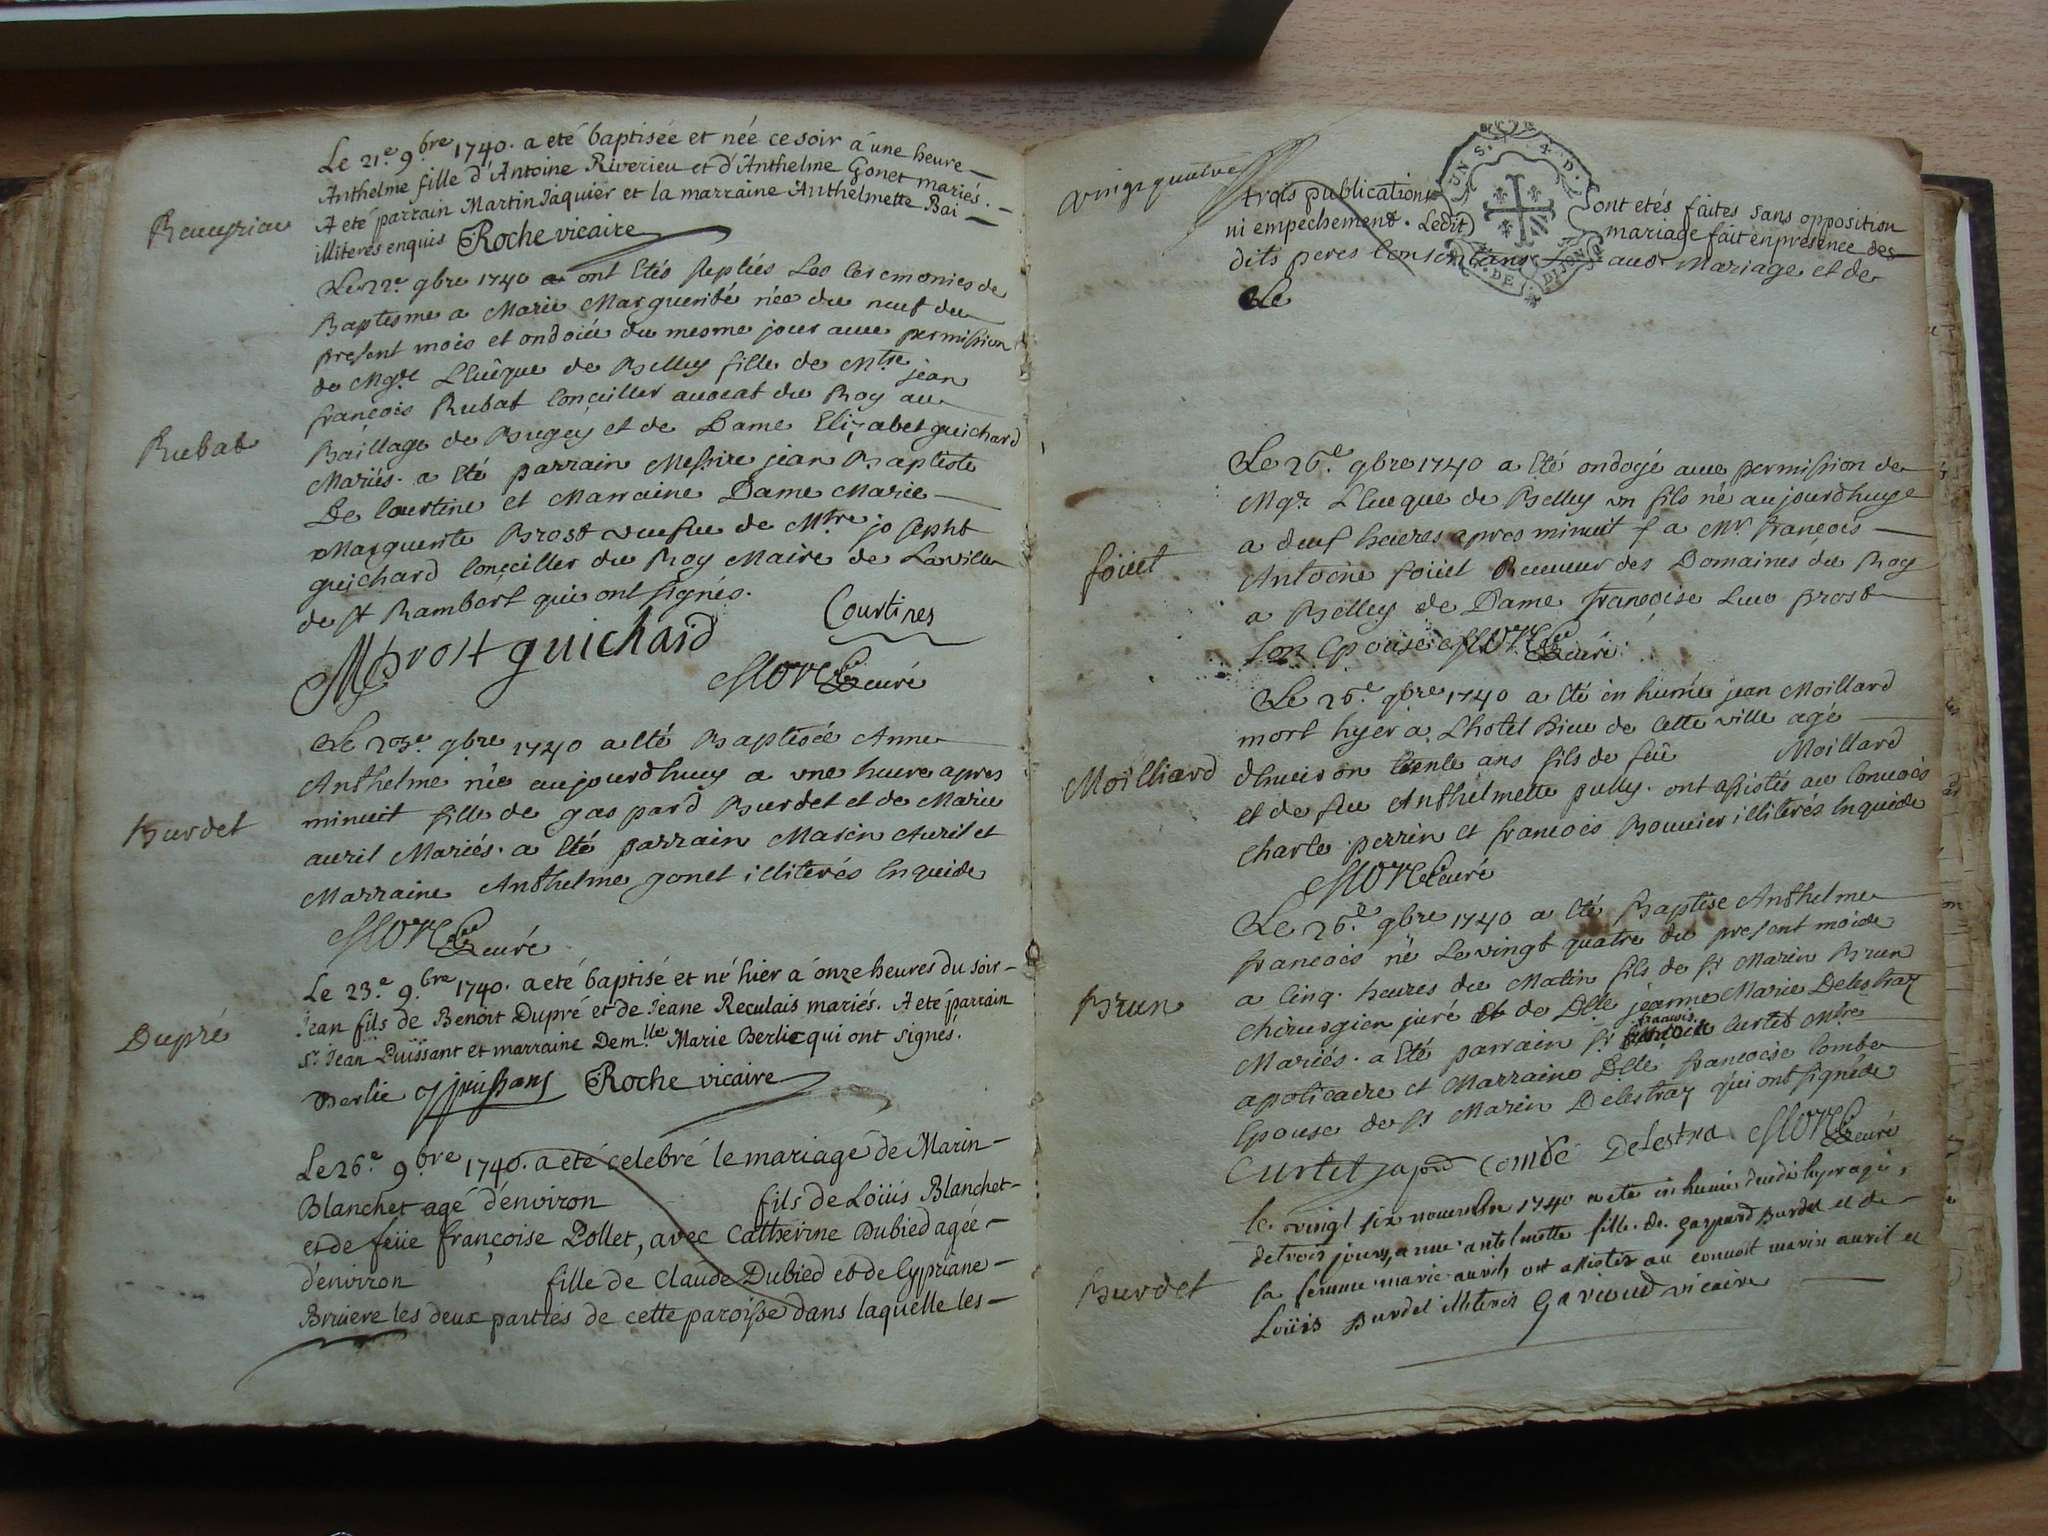 Le 21.e 9.bre 1740. a eté baptisée et née ce soir à une heure
Anthelme fille d'Antoine Riverieu et d'Anthelme Gonet mariés.
A eté parrain Martin Jaquier et la marraine Anthelmette Bai
illiteres enquis Roche vicaire
Le 22e 9bre 1740 ont Etés supleées Les Ceremonies de
Baptesme a Marie Marguerite née du neuf du
present mois et ondoiée du mesme jour avec permission
de Mgre L'Evêque de Belley fille de Mtre jean
françois Rubat Conçeiller avocat du Roy au
Baillage de Bugey et de Dame Elizabet guichard
Mariés. a Eté parrain Messire jean Baptiste
De Courtine et Marraine Dame Marie
Marguerite Brost veufue de Mtre joseph
guichard Conçeiller du Roy Maire de La ville
de st Rambert qui ont signés.
Courtines
MBrost guichard
curé
Rubat
Le 23e 9bre 1740 a Eté Baptisée Anne
Anthelme née aujourdhuy a une heure apres
minuit fille de gaspard Burdet et de Marie
auril Mariés. a Eté parrain Marin Auril et
Marraine Anthelme gonet illiterés Enquide
curé
Burdet
Le 23.e 9.bre 1740. a eté baptisé et né hier à onze heures du soir
Jean fils de Benoit Dupré et de Jeane Reculais mariés. A eté parrain
Sr. Jean Puissant et marraine Dem.lle Marie Berlie qui ont signés.
Berlie Jpuissant Roche vicaire
Dupré
Le 26.e 9.bre 1740. a eté celebré le mariage de Marin
Blanchet agé d'environ fils de Loüis Blanchet
et de feüe françoise Pollet, avec Catherine Dubied agée
d'environ fille de Claude Dubied et de Cypriane
Briviere les deux parties de cette paroisse dans laquelle les
vingt quatre
trois publications ont etés faites sans opposition
ni empechement. Ledit mariage fait en presence des
dits peres Consentans aud. Mariage et de
Le
UN S. D.
DE DIJON
Le 26e 9bre 1740 a Eté ondoyé avec permission de
Mgr L'Eveque de Belley un fils né aujourdhuy
a deuf heures apres minuit a Mr. françois
Antoine foüet Receveur des Domaines du Roy
a Belley de Dame françoise Luce Brost
son Epouse curé
foüet
Le 26e 9bre 1740 a eté inhumé jean Moillard
mort hyer a L'hotel Dieu de Cette ville agé
dhueiron trente ans fils de feü Moillard
et de feu Anthelmette pully. ont assistés au Convois
Charle perrin et francois Bouvier illiterés Enquide
curé
Moilliard
Le 26e 9bre 1740 a Eté Baptisé Anthelme
francois né Le vingt quatre du present mois
a Cinq heures du Matin fils de Sr Marin Brun
chirurgien juré et de Dlle jeanne Marie Delestraz
Mariés. a Eté parrain Sr francois Curtet Mtre
apoticaire et Marraine Dlle francoise Combe
Epouse de Sr Marin Delestraz qui ont signéde
Curtet Combe Delestra curé
Brun
le vingt six nouembre 1740 a ete inhumée agée
de trois jours, anne antelmette fille de Gaspard Burdet et de
sa femme marie auril, ont assistés au conuoit marin auril et
Loüis Burdet illiterés Gavioud vicaire
Burdet